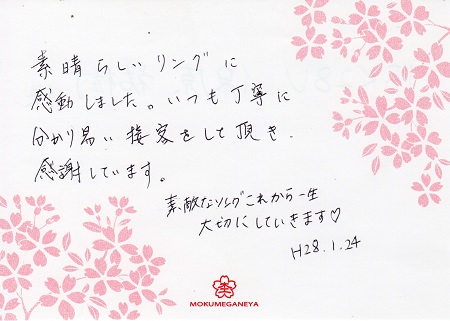 素晴らしいリングに
感動しました。いつも丁寧に
分かり易い接客をして頂き、
感謝しています。
素敵なリングこれから一生
大切にしていきます♡
H28.1.24
MOKUMEGANEYA